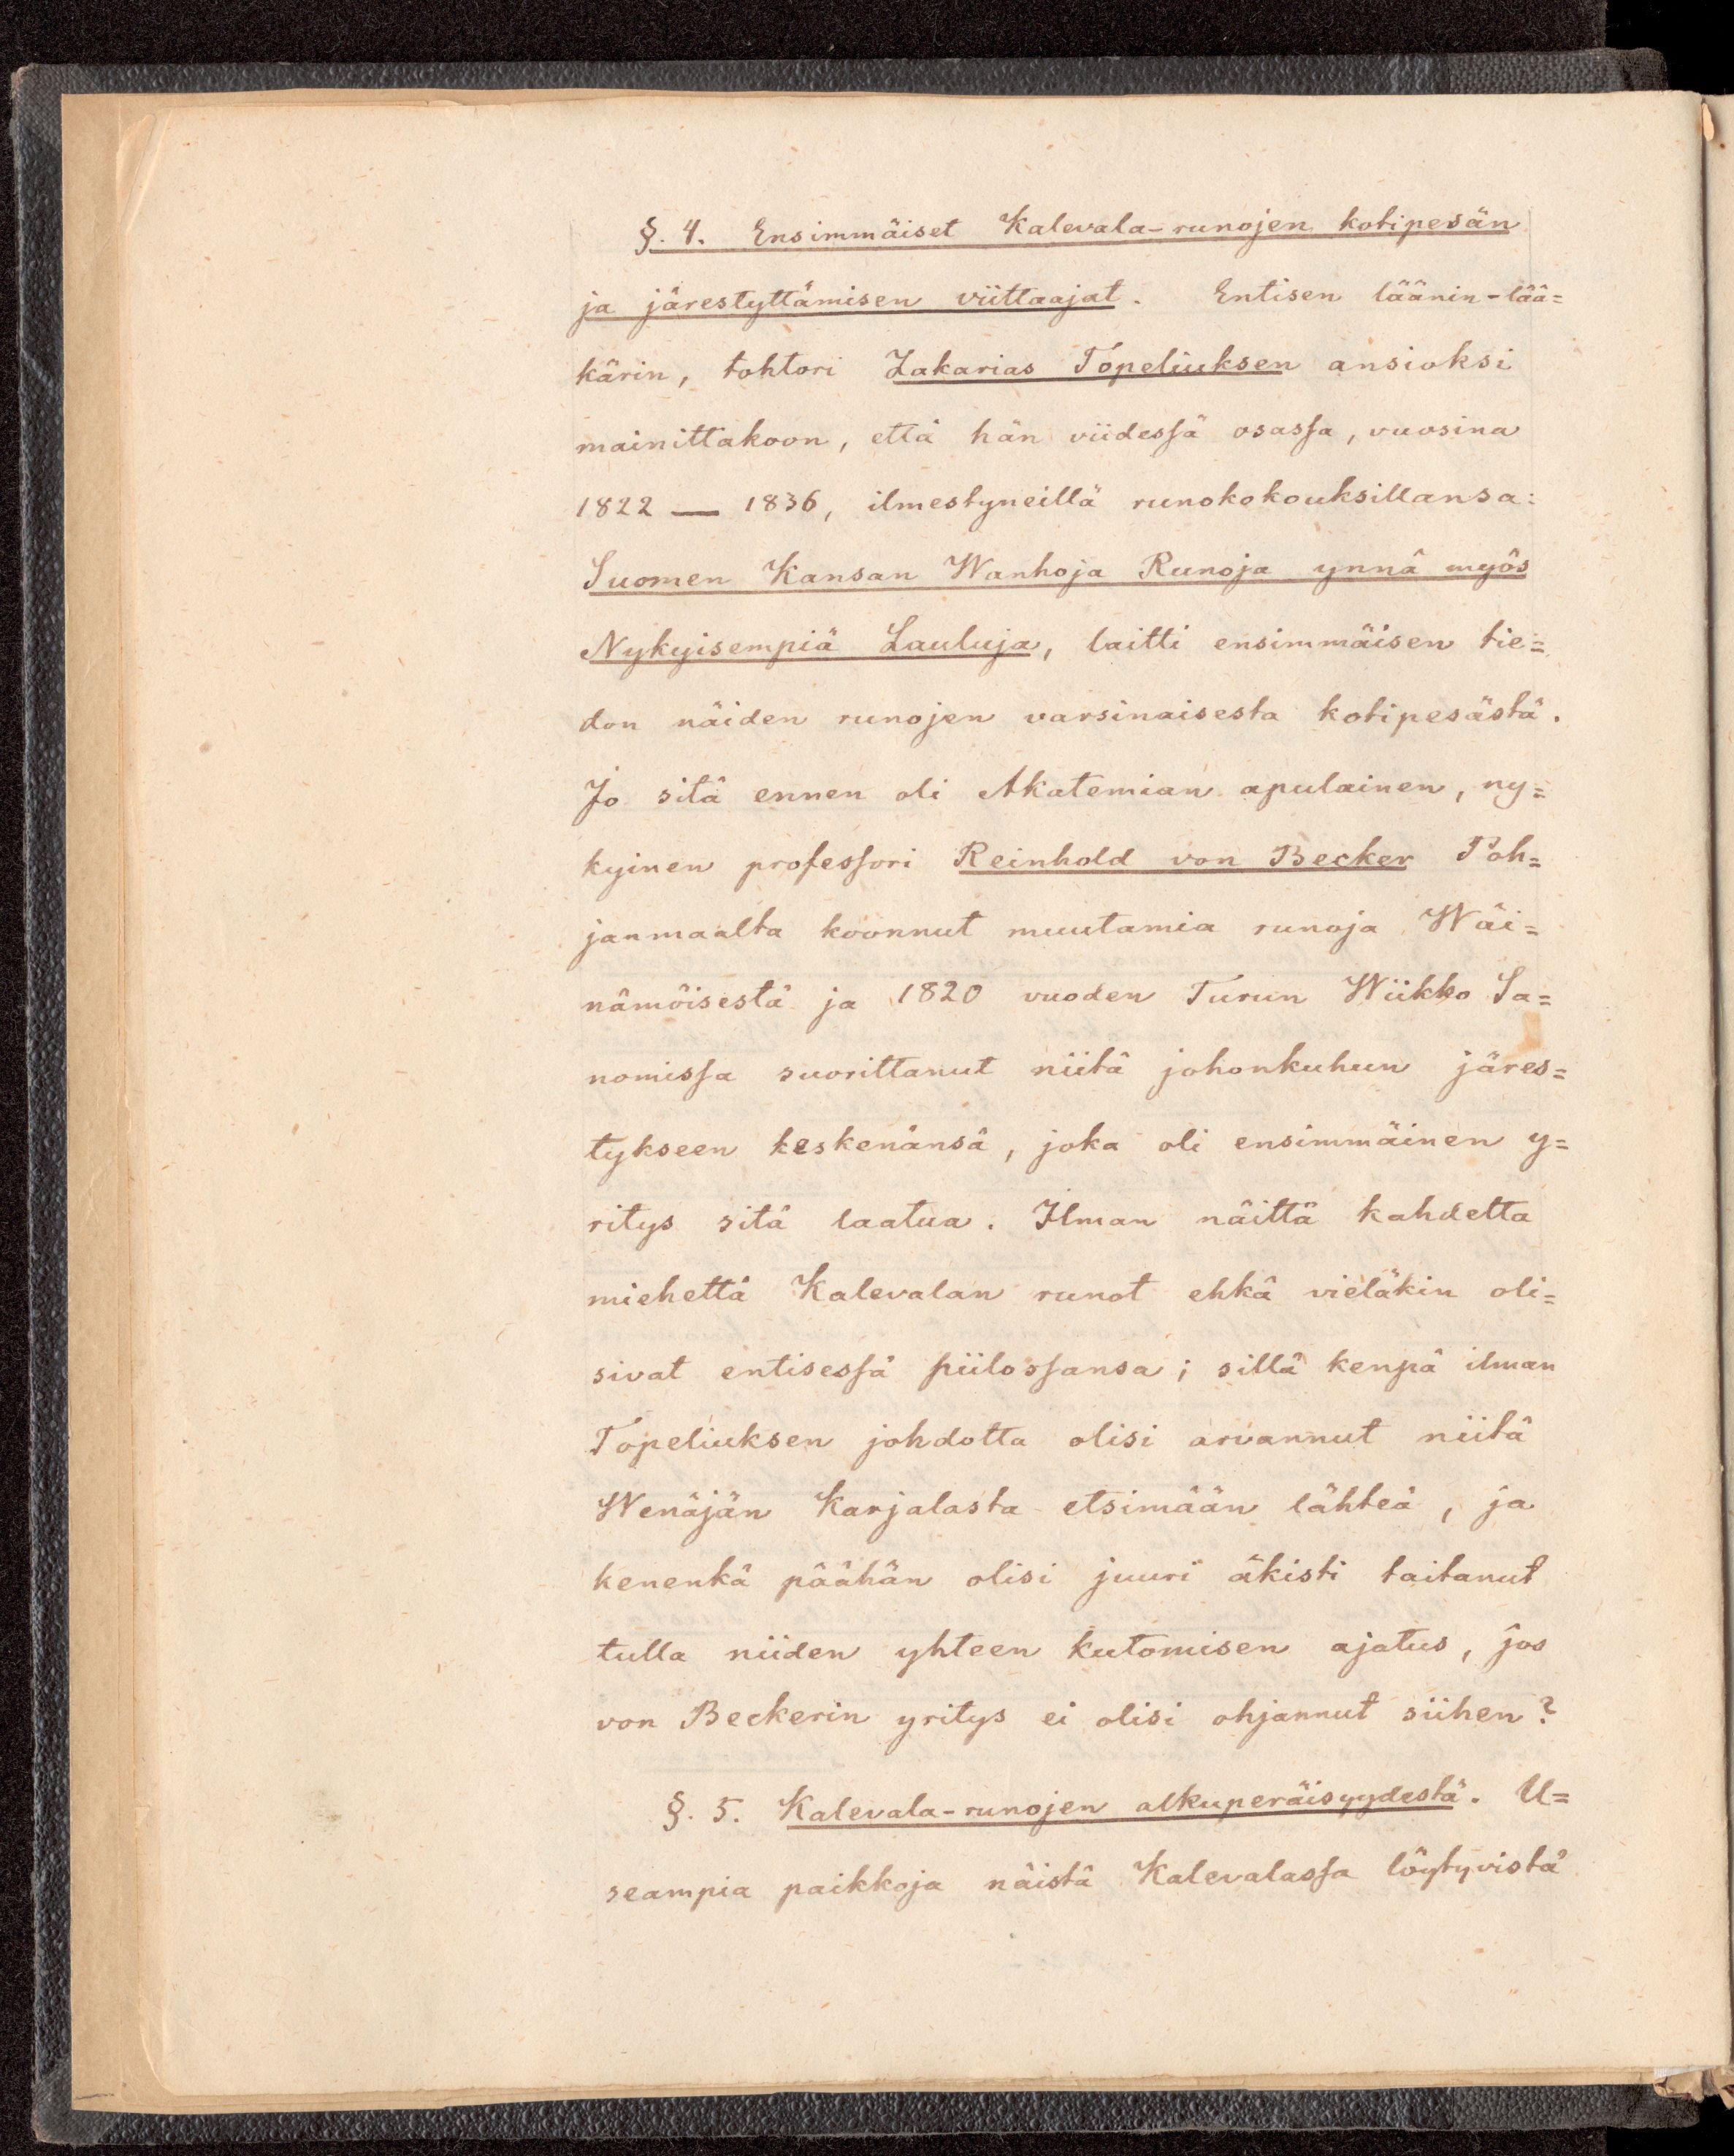 §. 4. Ensimmäiset Kalevala-runojen kotipesän
ja järestyttämisen viittaajat. Entisen läänin-lää=
kärin, tohtori Zakarias Topeliuksen ansioksi
mainittakoon, että hän viidesſä osasſa, vuosina
1822 — 1836, ilmestyneillä runokokouksillansa:
Suomen Kansan Wanhoja Runoja ynnä myös
Nykyisempiä Lauluja, laitti ensimmäisen tie=
don näiden runojen varsinaisesta kotipesästä.
Jo sitä ennen oli Akatemian apulainen, ny=
kyinen profesſori Reinhold von Becker Poh=
janmaalta koonnut muutamia runoja Wäi=
nämöisestä ja 1820 vuoden Turun Wiikko Sa=
nomisſa suorittanut niitä johonkuhun järes=
tykseen keskenänsä, joka oli ensimmäinen y=
ritys sitä laatua. Ilman näittä kahdetta
miehettä Kalevalan runot ehkä vieläkin oli=
sivat entisesſä piilosſansa; sillä kenpä ilman
Topeliuksen johdotta olisi arvannut niitä
Wenäjän Karjalasta etsimään lähteä, ja
kenenkä päähän olisi juuri äkisti taitanut
tulla niiden yhteen kutomisen ajatus, jos
von Beckerin yritys ei olisi ohjannut siihen?
§. 5. Kalevala-runojen alkuperäisyydestä. U=
seampia paikkoja näistä Kalevalasſa löytyvistä